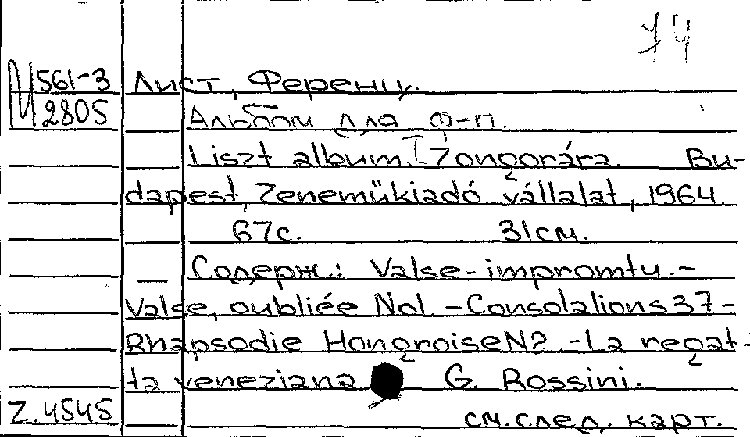 74
М561-3 Лист, Ференц.
М2805 Альбом для ф-п.
Liszt album. Zongorára. Bu-
dapest, Zeneműkiadó vállalat, 1964
67с. 31см.
Содерж.: Valse-impromtu.-
Valse, oubliée No1.-Consolations 37-
Rhapsodie HongroiseN2.-La regat-
ta veneziana G. Rossini.
Z.4545 см.след. карт.